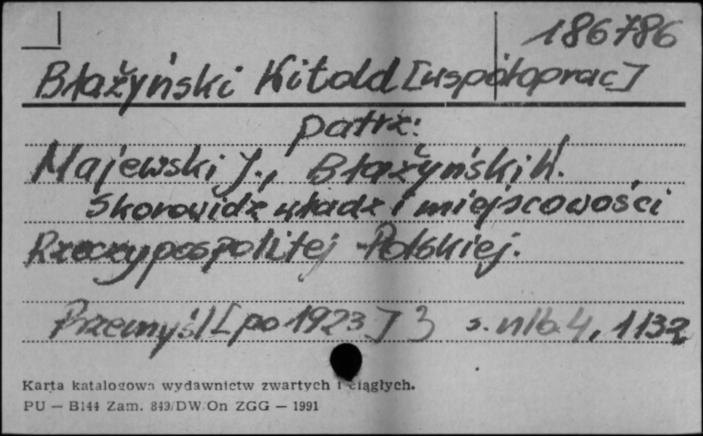 186786
Błażyński Witold [współoprac]
patrz:
Majewski J., Błażyński W.
Skorowidz władz i miejscowości
Rzeczypospolitej Polskiej.
Przemyśl [po 1923] 3 s. nlb. 4, 1132
Karta katalogowa wydawnictw zwartych i ciągłych.
PU — B144 Zam. 849/DW/On ZGG — 1991